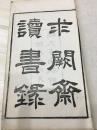 求闕齋
讀書錄